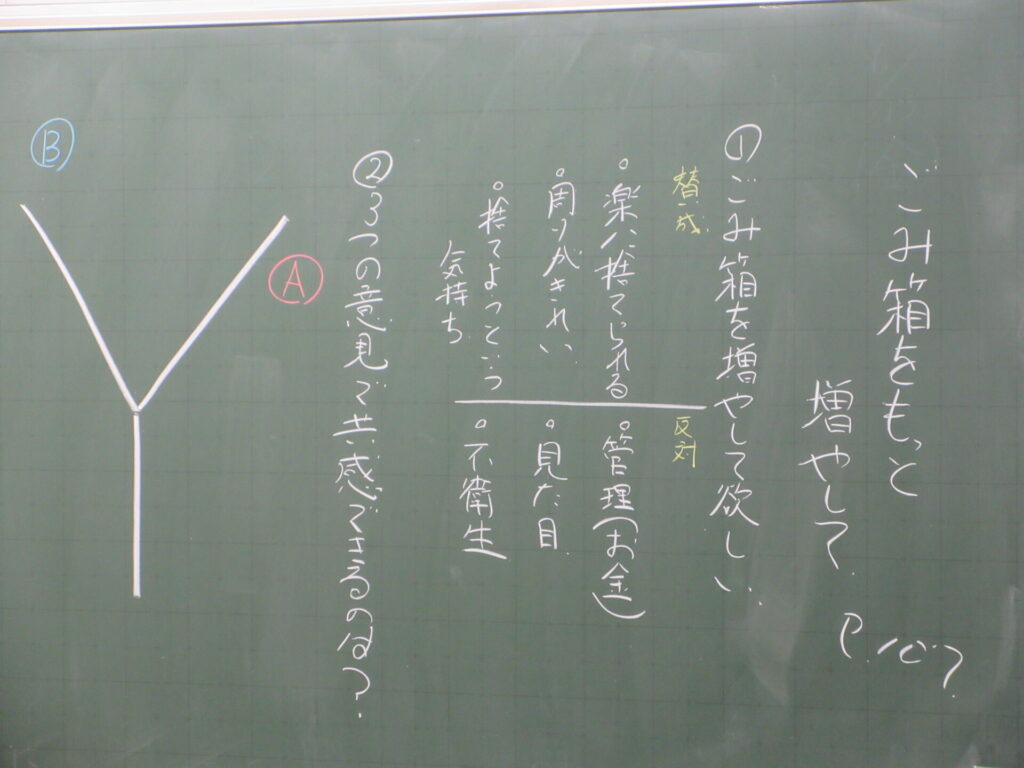 ごみ箱をもっと
増やして
P.122
①ごみ箱を増やして欲しい.
賛成
反対
。楽に捨てられる
。管理(お金)
。周りがきれい
。見た目
。捨てよっていう
気持ち
。不衛生
②3つの意見で共感できるのは?
A
B